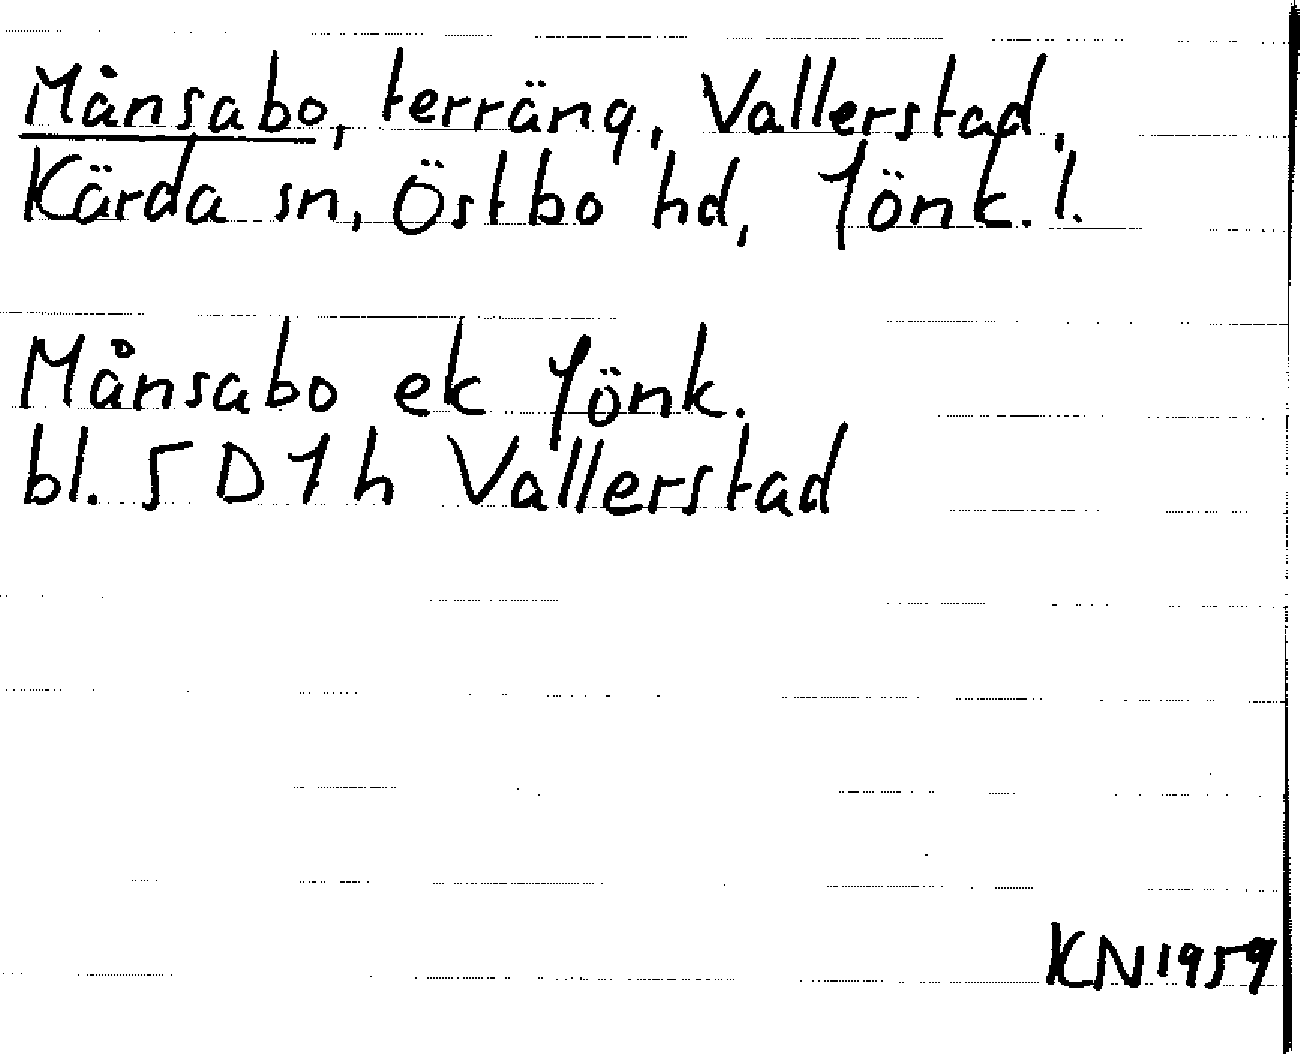 Månsabo, terräng, Vallerstad,
Kärda sn, Östbo hd, Jönk. l.
Månsabo ek Jönk.
bl. 5D1h Vallerstad
KN1959